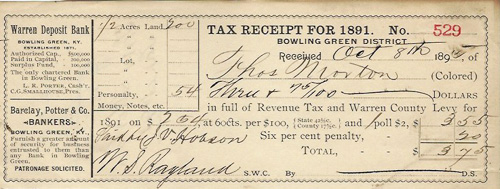 Warren Deposit Bank
BOWLING GREEN, KY.
ESTABLISHED 1871.
Authorized Cap., $500,000
Paid in Capital, 100,000
Surplus Fund, 100,000
The only chartered Bank
in Bowling Green.
L. R. PORTER, Cash'r.
C.G. SMALLHOUSE, Pres.
Barclay, Potter & Co.
BANKERS
BOWLING GREEN, KY.
Furnish a greater amount
of security for business
entrusted to them than
any Bank in Bowling
Green.
PATRONAGE SOLICITED.
1/2 Acres Land 200
Lot,
Personalty, 54
Money, Notes, etc.
TAX RECEIPT FOR 1891. No. 529
BOWLING GREEN DISTRICT
Received Oct 8th 189
Thos Morton (Colored)
Three & 75/100 DOLLARS
in full of Revenue Tax and Warren County Levy for
1891 on $ at 60cts. per $100, and poll $2, $ 3 55
Six per cent penalty, - 20
TOTAL, - - $ 3 75
V Hobson
W. S. Ragland S.W.C. By D.S.